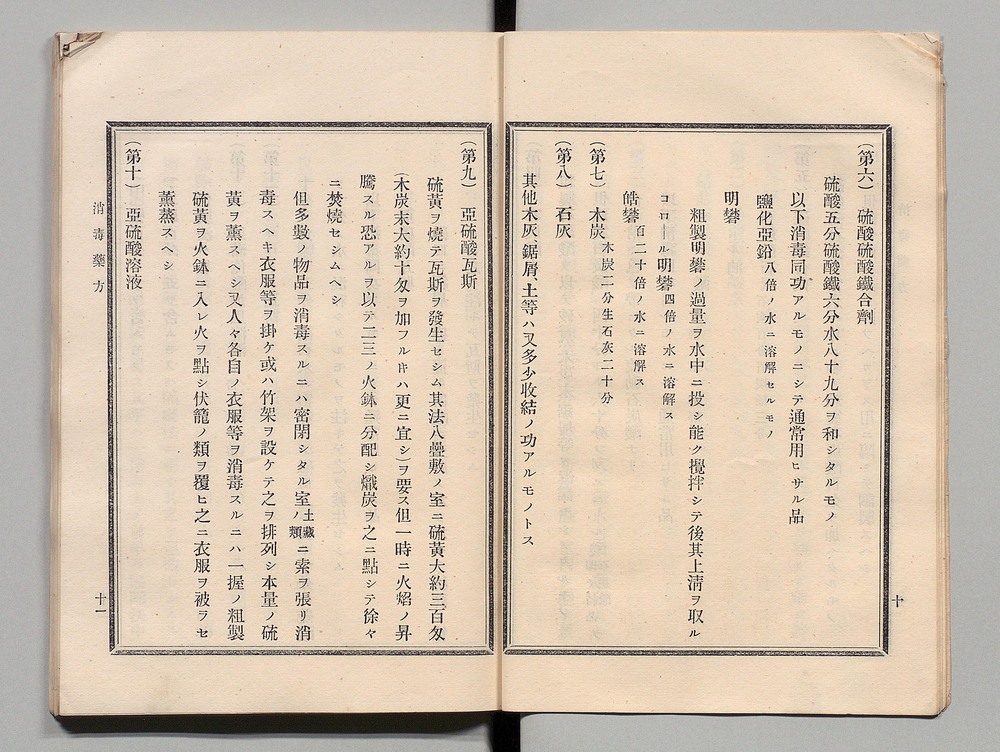 (第六)　硫酸硫酸鐵合劑
硫酸五分硫酸鐵六分水八十九分ヲ和シタルモノ
以下消毒同功アルモノニシテ通常用ヒサル品
鹽化亞鉛八倍ノ水ニ溶解セルモノ
明礬
粗製明礬ノ過量ヲ水中ニ投シ能ク攪拌シテ後其上淸ヲ取ル
コロール明礬四倍ノ水ニ溶解ス
皓礬百二十倍ノ水ニ溶解ス
(第七)　木炭　木炭二分生石灰二十分
(第八)　石灰
其他木灰、鋸屑、土等ハ又多少收結ノ功アルモノトス
十
(第九)　亞硫酸瓦斯
硫黃ヲ燒テ瓦斯ヲ發生セシム其法八疊敷ノ室ニ硫黃大約三百匁
(木炭末大約十匁ヲ加フル𪜈ハ更ニ宜シ)ヲ要ス但一時ニ火焰ノ昇
騰スル恐アルヲ以テ二三ノ火鉢ニ分配シ熾炭ヲ之ニ點シテ徐々
ニ焚燒セシムヘシ
但多數ノ物品ヲ消毒スルニハ密閉シタル室土藏ノ類ニ索ヲ張リ消
毒スヘキ衣服等ヲ掛ケ或ハ竹架ヲ設ケテ之ヲ排列シ本量ノ硫
黃ヲ薰スヘシ又人々各自ノ衣服等ヲ消毒スルニハ一握ノ粗製
硫黃ヲ火鉢ニ入レ火ヲ點シ伏籠ノ類ヲ覆ヒ之ニ衣服ヲ被ラセ
薰蒸スヘシ
(第十)　亞硫酸溶液
消毒藥方
十一